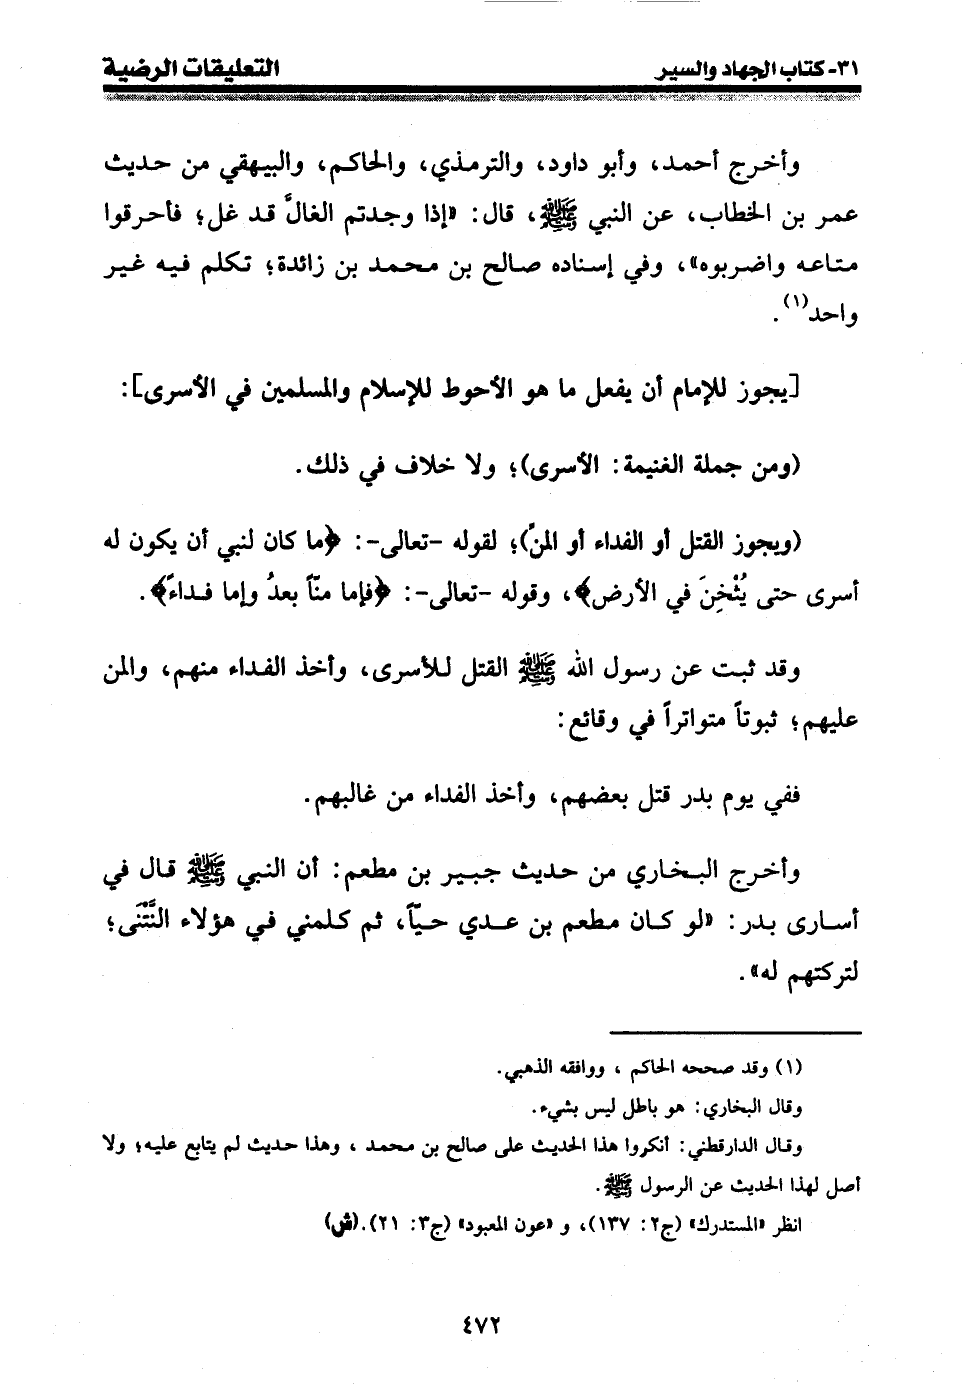 ٣١- كتاب الجهاد والسير
التعليقات الرضية
وأخرج أحمد، وأبو داود، والترمذي، والحاكم، والبيهقي من حديث
عمر بن الخطاب، عن النبي ﷺ، قال: «إذا وجدتم الغالَّ قد غل؛ فأحرقوا
متاعه واضربوه»، وفي إسناده صالح بن محمد بن زائدة؛ تكلم فيه غير
واحد(١).
[يجوز للإمام أن يفعل ما هو الأحوط للإسلام والمسلمين في الأسرى]:
(ومن جملة الغنيمة: الأسرى)؛ ولا خلاف في ذلك.
(ويجوز القتل أو الفداء أو المنّ)؛ لقوله -تعالى-: ﴿ما كان لنبي أن يكون له
أسرى حتى يُثْخِنَ في الأرض﴾، وقوله -تعالى-: ﴿فإما منّاً بعدُ وإما فداءً﴾.
وقد ثبت عن رسول الله ﷺ القتل للأسرى، وأخذ الفداء منهم، والمن
عليهم؛ ثبوتاً متواتراً في وقائع:
ففي يوم بدر قتل بعضهم، وأخذ الفداء من غالبهم.
وأخرج البخاري من حديث جبير بن مطعم: أن النبي ﷺ قال في
أسارى بدر: «لو كان مطعم بن عدي حيّاً، ثم كلمني في هؤلاء النَّتْنَى؛
لتركتهم له».
(١) وقد صححه الحاكم ، ووافقه الذهبي.
وقال البخاري: هو باطل ليس بشيء.
وقال الدارقطني: أنكروا هذا الحديث على صالح بن محمد ، وهذا حديث لم يتابع عليه؛ ولا
أصل لهذا الحديث عن الرسول ﷺ.
انظر «المستدرك» (ج٢: ١٣٧)، و «عون المعبود» (ج٣: ٢١).(ش)
٤٧٢